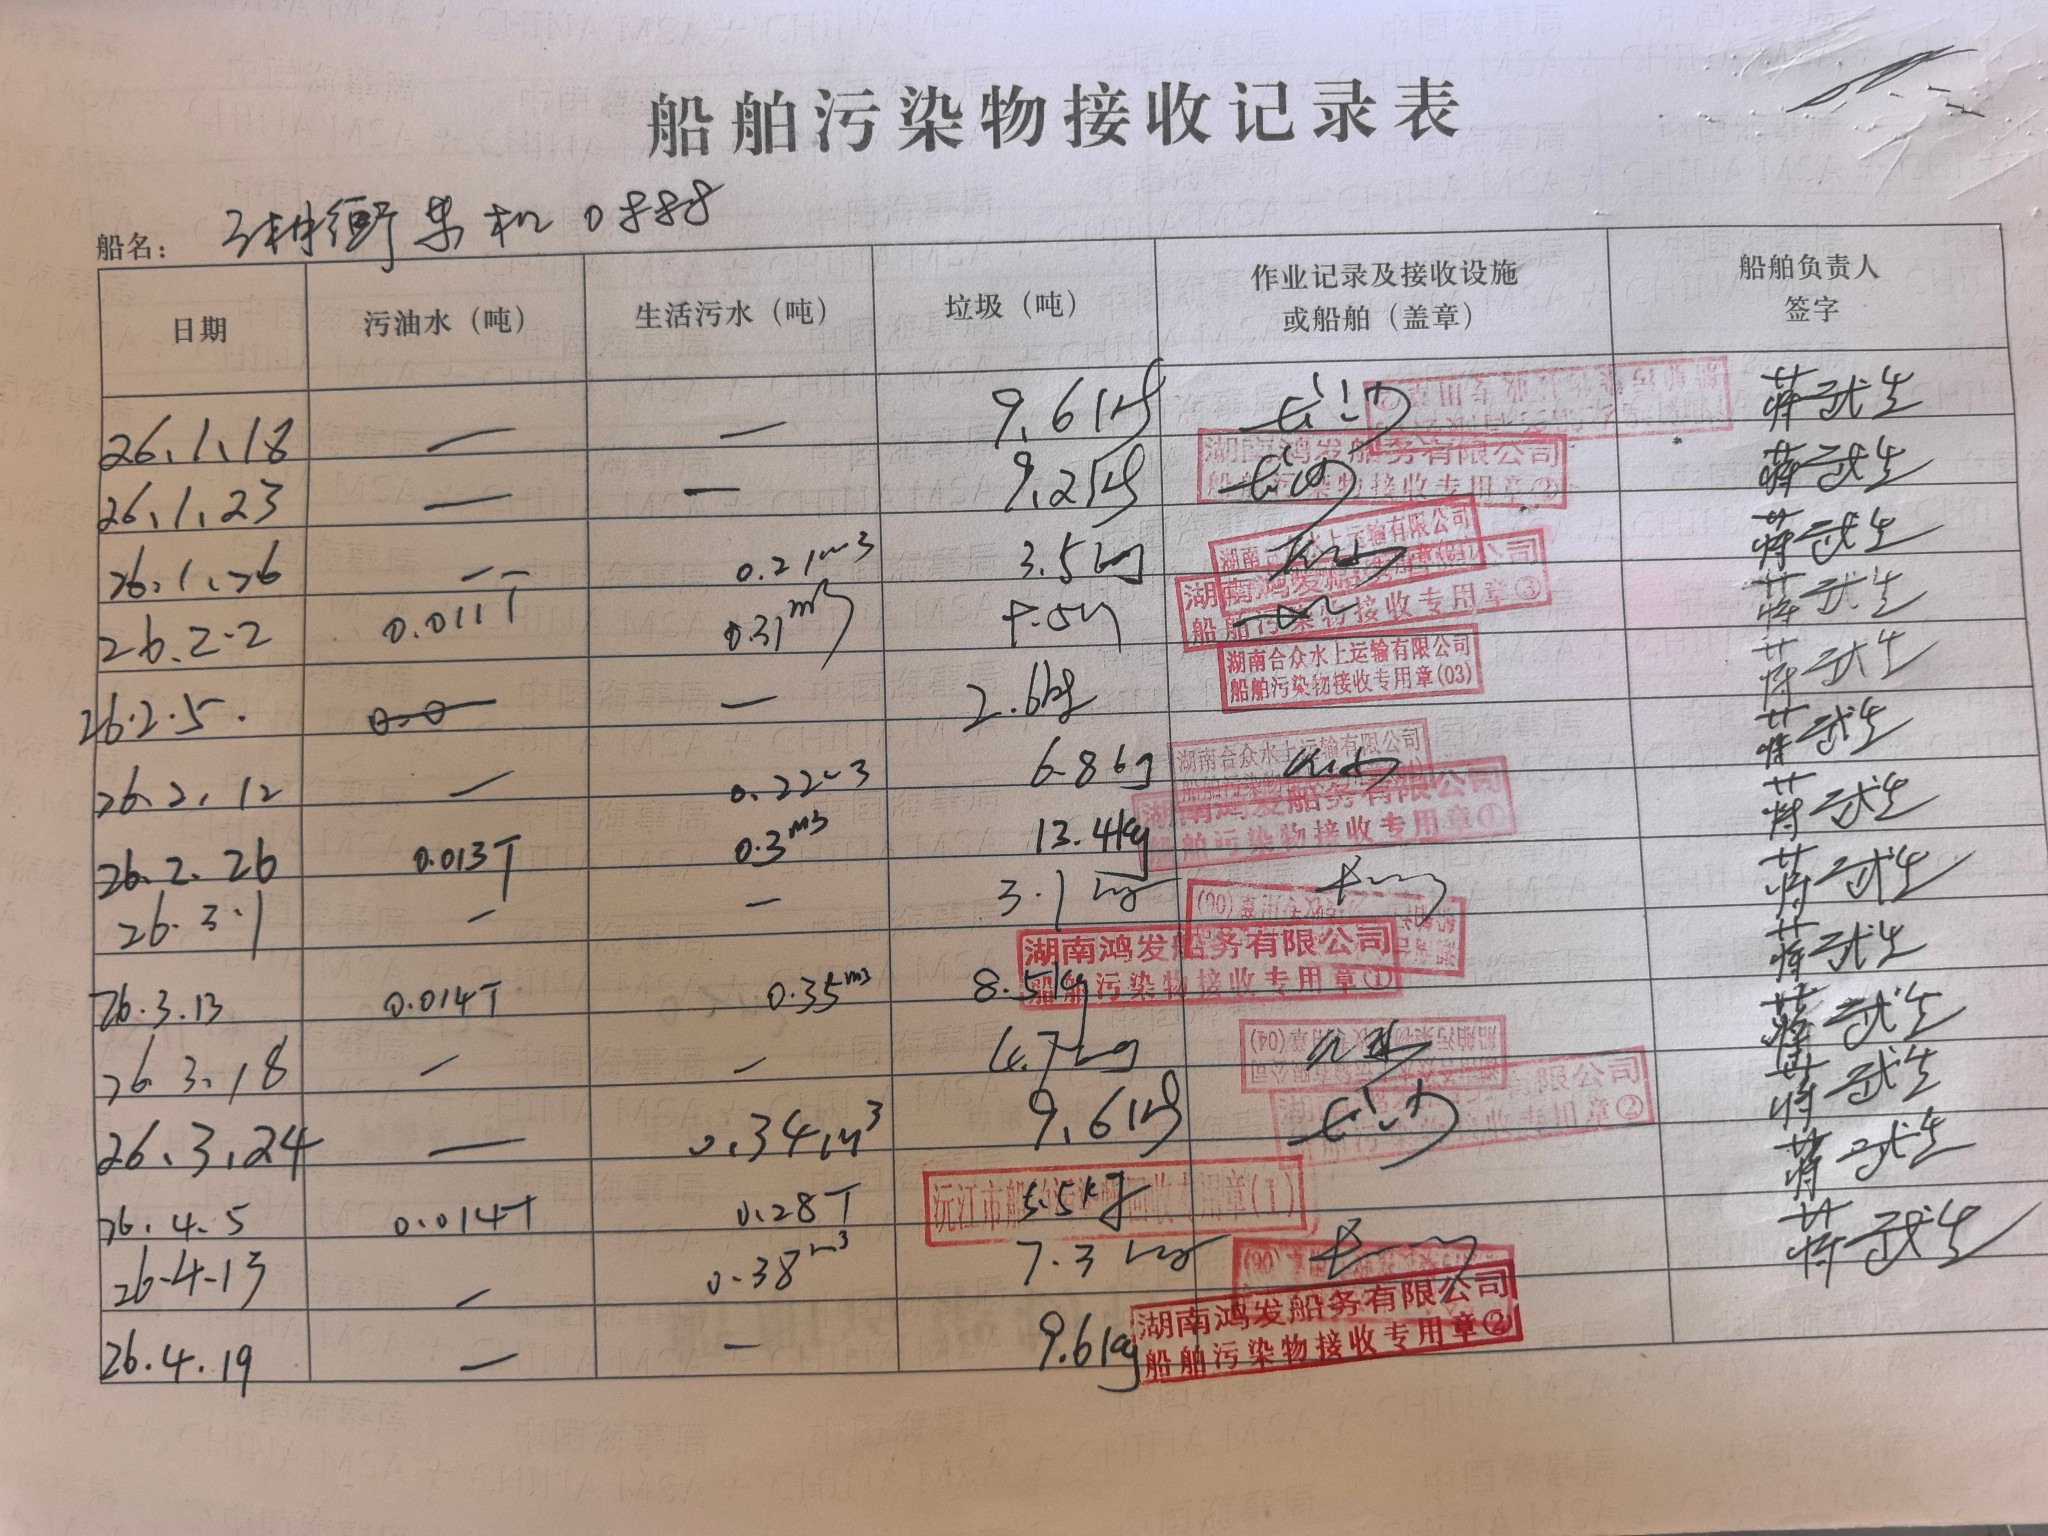 船舶污染物接收记录表
船名： 机0888
日期 污油水（吨） 生活污水（吨） 垃圾（吨） 作业记录及接收设施或船舶（盖章） 船舶负责人签字
26.1.18 — — 9.6kg 蒋武生
26.1.23 — — 9.2kg 湖南鸿发船务有限公司 船舶污染物接收专用章② 蒋武生
26.1.26 — 0.21m3 3.5kg 湖南合众水上运输有限公司 蒋武生
26.2.2 0.011T 0.31m3 湖南鸿发船务有限公司 船舶污染物接收专用章③ 蒋武生
26.2.5. 0.0 — 2.6kg 湖南合众水上运输有限公司 船舶污染物接收专用章(03) 蒋武生
26.2.12 — 0.22m3 6.8kg 湖南合众水上运输有限公司 蒋武生
26.2.26 0.013T 0.3m3 13.4kg 湖南鸿发船务有限公司 船舶污染物接收专用章① 蒋武生
26.3.1 — — 3.1kg 蒋武生
26.3.13 0.014T 0.35m3 8.5kg 湖南鸿发船务有限公司 船舶污染物接收专用章① 蒋武生
26.3.18 — — 4.7kg 船舶污染物接收专用章(04) 蒋武生
26.3.24 — 0.34m3 9.6kg 蒋武生
26.4.5 0.014T 0.28T 5.5kg 沅江市船舶污染物回收专用章(1) 蒋武生
26.4.13 — 0.38m3 7.3kg 蒋武生
26.4.19 — — 9.6kg 湖南鸿发船务有限公司 船舶污染物接收专用章②